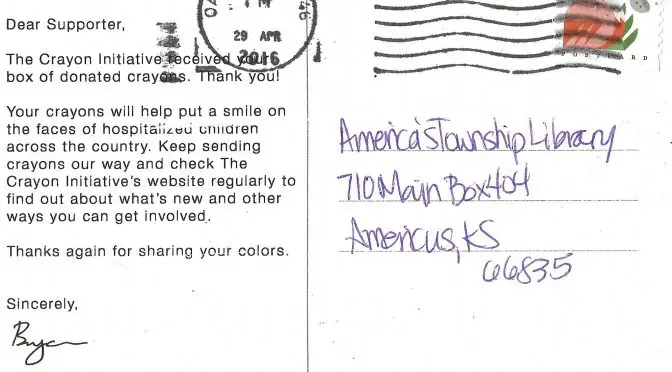 Dear Supporter,
29 APR
2016
The Crayon Initiative received your
box of donated crayons. Thank you!
Your crayons will help put a smile on
the faces of hospitalized children
across the country. Keep sending
crayons our way and check The
Crayon Initiative's website regularly to
find out about what's new and other
ways you can get involved.
Thanks again for sharing your colors.
Sincerely,
Bryan
America's Township Library
710 Main Box 404
Americus, KS
66835